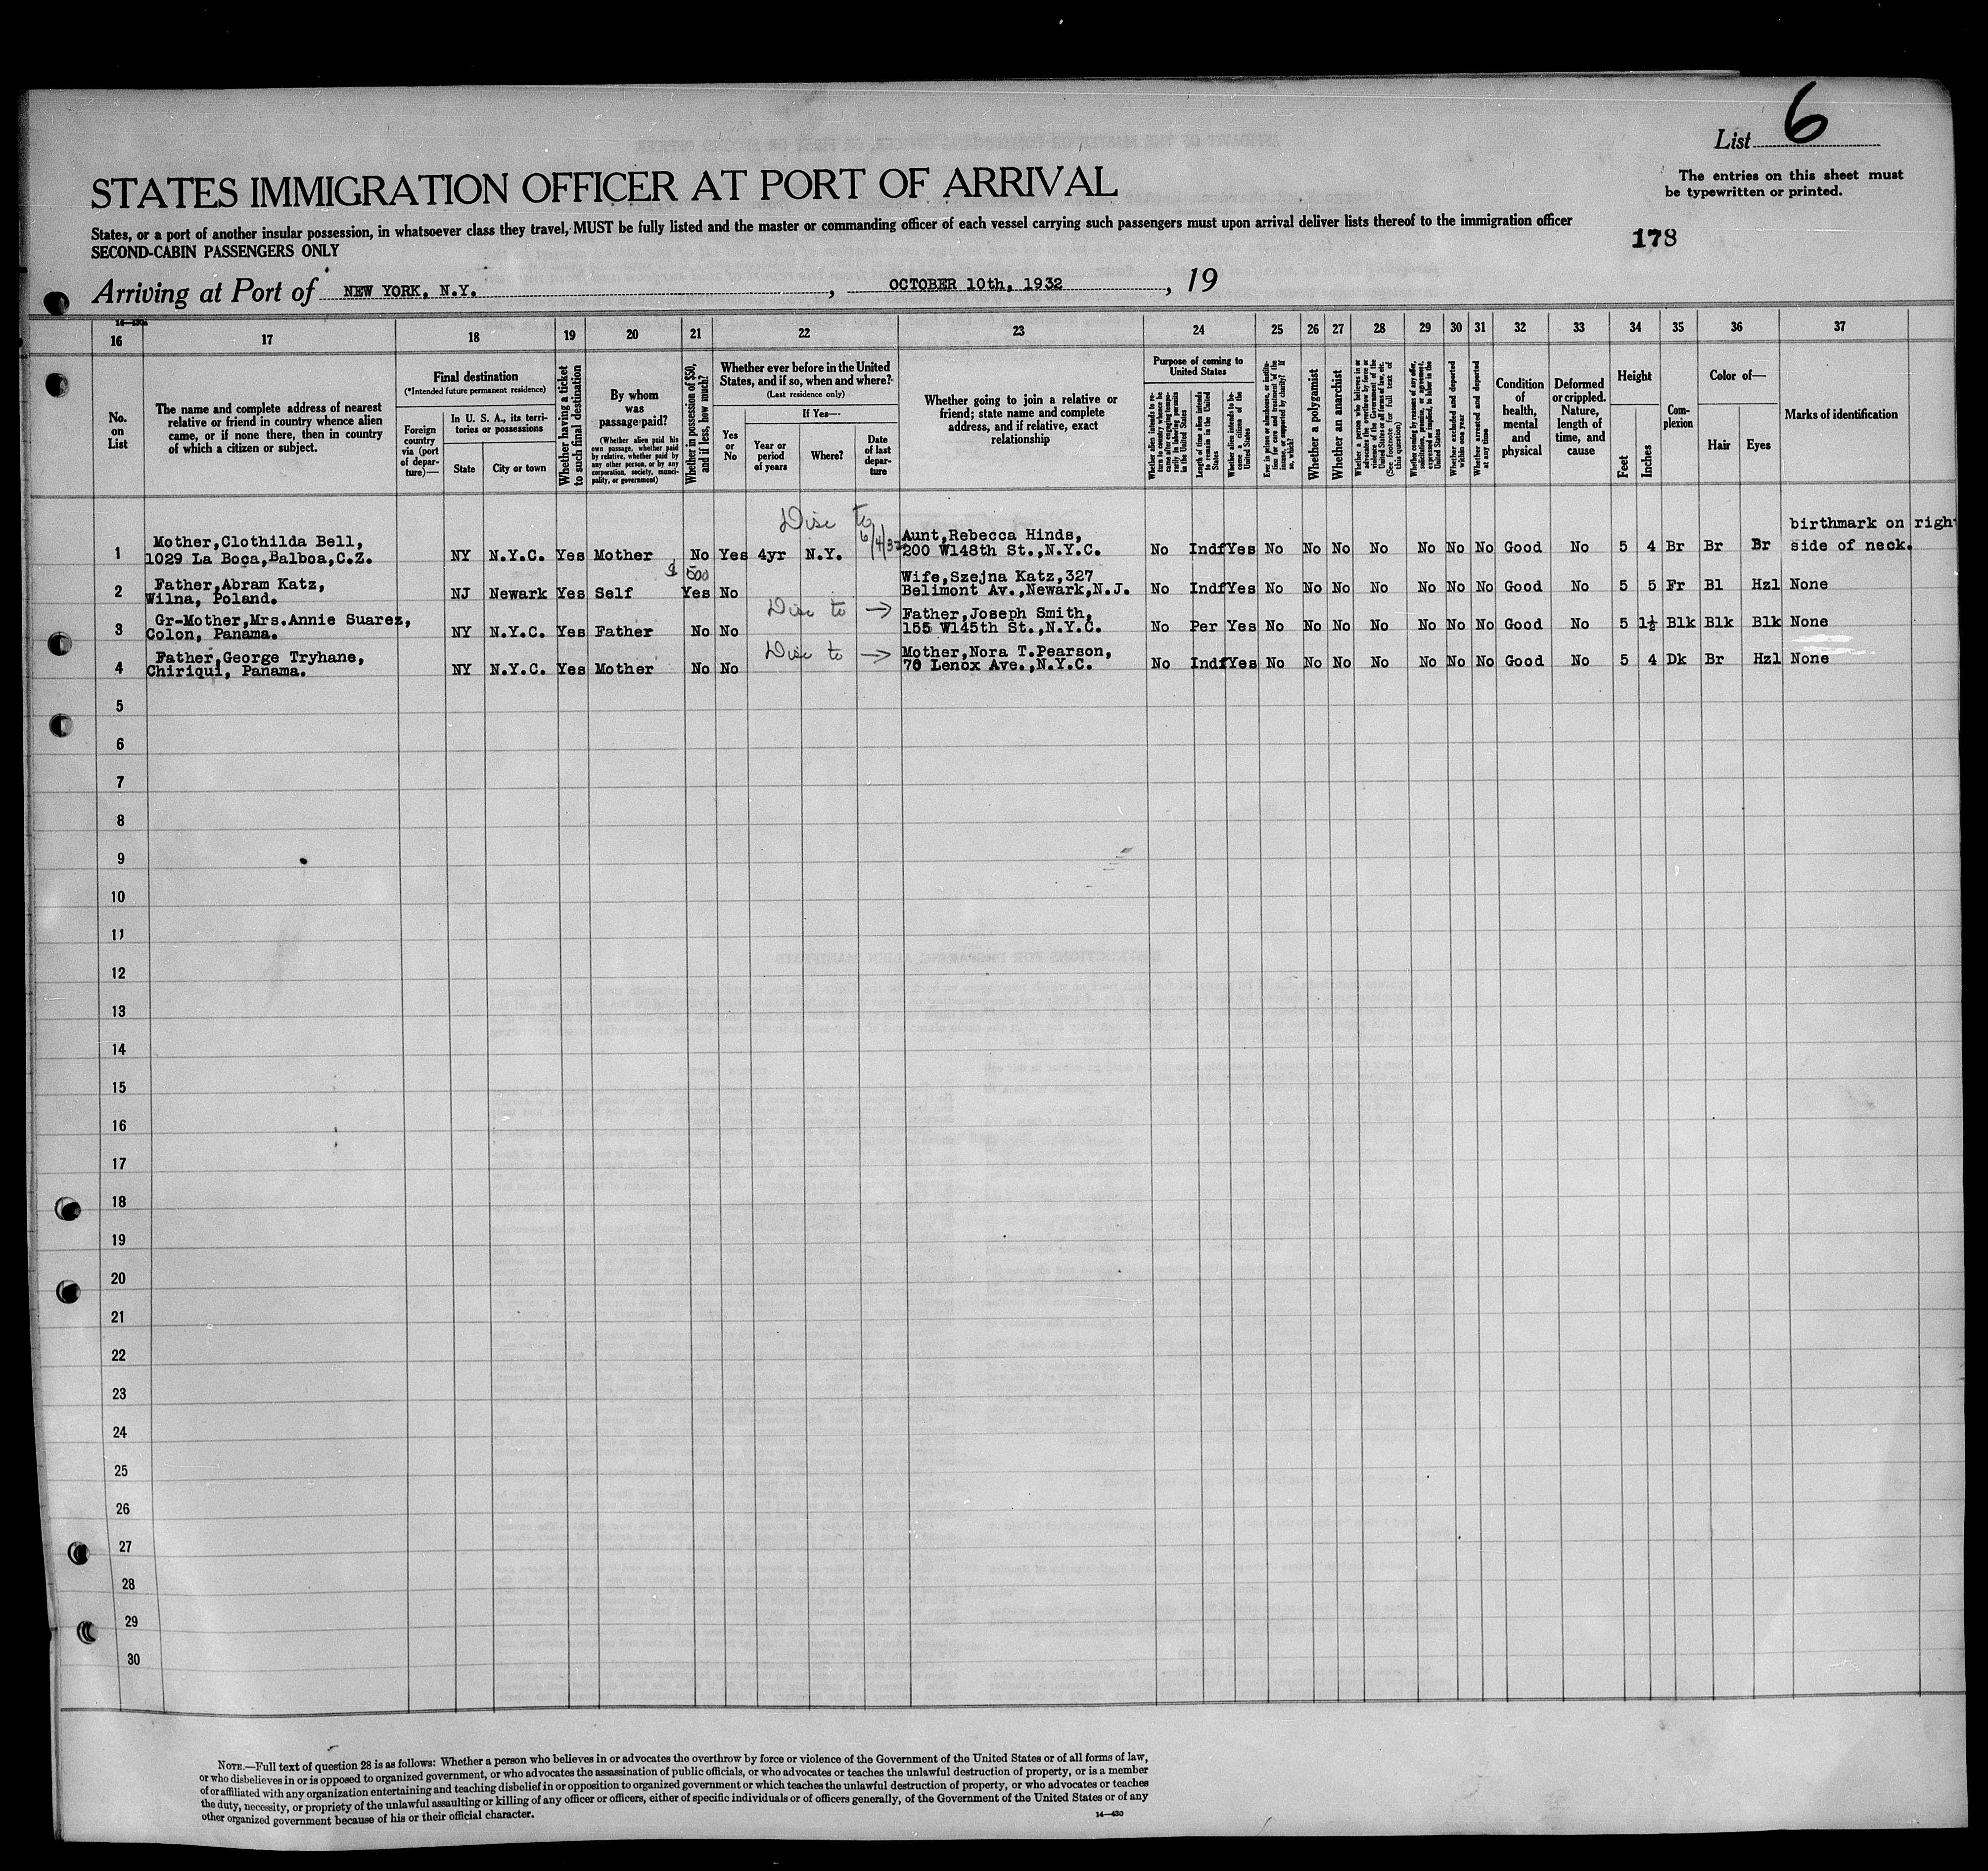 List 6
The entries on this sheet must
be typewritten or printed.
STATES IMMIGRATION OFFICER AT PORT OF ARRIVAL
States, or a port of another insular possession, in whatsoever class they travel, MUST be fully listed and the master or commanding officer of each vessel carrying such passengers must upon arrival deliver lists thereof to the immigration officer
SECOND-CABIN PASSENGERS ONLY
178
Arriving at Port of NEW YORK, N.Y. , OCTOBER 10th, 1932 , 19
16 17 18 19 20 21 22 23 24 25 26 27 28 29 30 31 32 33 34 35 36 37
No.
on
List
The name and complete address of nearest
relative or friend in country whence alien
came, or if none there, then in country
of which a citizen or subject.
Final destination
(*Intended future permanent residence)
Foreign
country
via (port
of depar-
ture)—
In U. S. A., its terri-
tories or possessions
State
City or town
Whether having a ticket
to such final destination
By whom
was
passage paid?
(Whether alien paid his
own passage, whether paid
by relative, whether paid by
any other person, or by any
corporation, society, munci-
pality, or government)
Whether in possession of $50,
and if less, how much?
Whether ever before in the United
States, and if so, when and where?
(Last residence only)
Yes
or
No
If Yes—
Year or
period
of years
Where?
Date
of last
depar-
ture
Whether going to join a relative or
friend; state name and complete
address, and if relative, exact
relationship
Purpose of coming to
United States
Whether alien intends to re-
turn to country whence he
came after engaging tempo-
rarily in laboring pursuits
in the United States
Length of time alien intends
to remain in the United
States
Whether alien intends to be-
come a citizen of the
United States
Ever in prison or almshouse, or institu-
tion for care and treatment of the
insane, or supported by charity? If
so, which?
Whether a polygamist
Whether an anarchist
Whether a person who believes in or
advocates the overthrow by force or
violence of the Government of the
United States or all forms of law, etc.
(See footnote for full text of
this question)
Whether coming by reason of any offer,
solicitation, promise, or agreement,
expressed or implied, to labor in the
United States
Whether excluded and deported
within one year
Whether arrested and deported
at any time
Condition
of
health,
mental
and
physical
Deformed
or crippled.
Nature,
length of
time, and
cause
Height
Feet
Inches
Com-
plexion
Color of—
Hair
Eyes
Marks of identification
Disc to
6/4/32
birthmark on righ
Mother,Clothilda Bell,
Aunt,Rebecca Hinds,
1 1029 La Boca,Balboa,C.Z. NY N.Y.C. Yes Mother No Yes 4yr N.Y. 200 W148th St.,N.Y.C. No Indf Yes No No No No No No No Good No 5 4 Br Br Br side of neck.
$ 500
Father,Abram Katz,
Wife,Szejna Katz,327
2 Wilna, Poland. NJ Newark Yes Self Yes No Belimont Av.,Newark,N.J. No Indf Yes No No No No No No No Good No 5 5 Fr Bl Hzl None
Gr-Mother,Mrs.Annie Suarez,
Disc to → Father,Joseph Smith,
3 Colon, Panama. NY N.Y.C. Yes Father No No 155 W145th St.,N.Y.C. No Per Yes No No No No No No No Good No 5 1½ Blk Blk Blk None
Father,George Tryhane,
Disc to → Mother,Nora T.Pearson,
4 Chiriqui, Panama. NY N.Y.C. Yes Mother No No 70 Lenox Ave.,N.Y.C. No Indf Yes No No No No No No No Good No 5 4 Dk Br Hzl None
5
6
7
8
9
10
11
12
13
14
15
16
17
18
19
20
21
22
23
24
25
26
27
28
29
30
NOTE.—Full text of question 28 is as follows: Whether a person who believes in or advocates the overthrow by force or violence of the Government of the United States or of all forms of law,
or who disbelieves in or is opposed to organized government, or who advocates the assassination of public officials, or who advocates or teaches the unlawful destruction of property, or is a member
of or affiliated with any organization entertaining and teaching disbelief in or opposition to organized government or which teaches the unlawful destruction of property, or who advocates or teaches
the duty, necessity, or propriety of the unlawful assaulting or killing of any officer or officers, either of specific individuals or of officers generally, of the Government of the United States or of any
other organized government because of his or their official character.
14—430